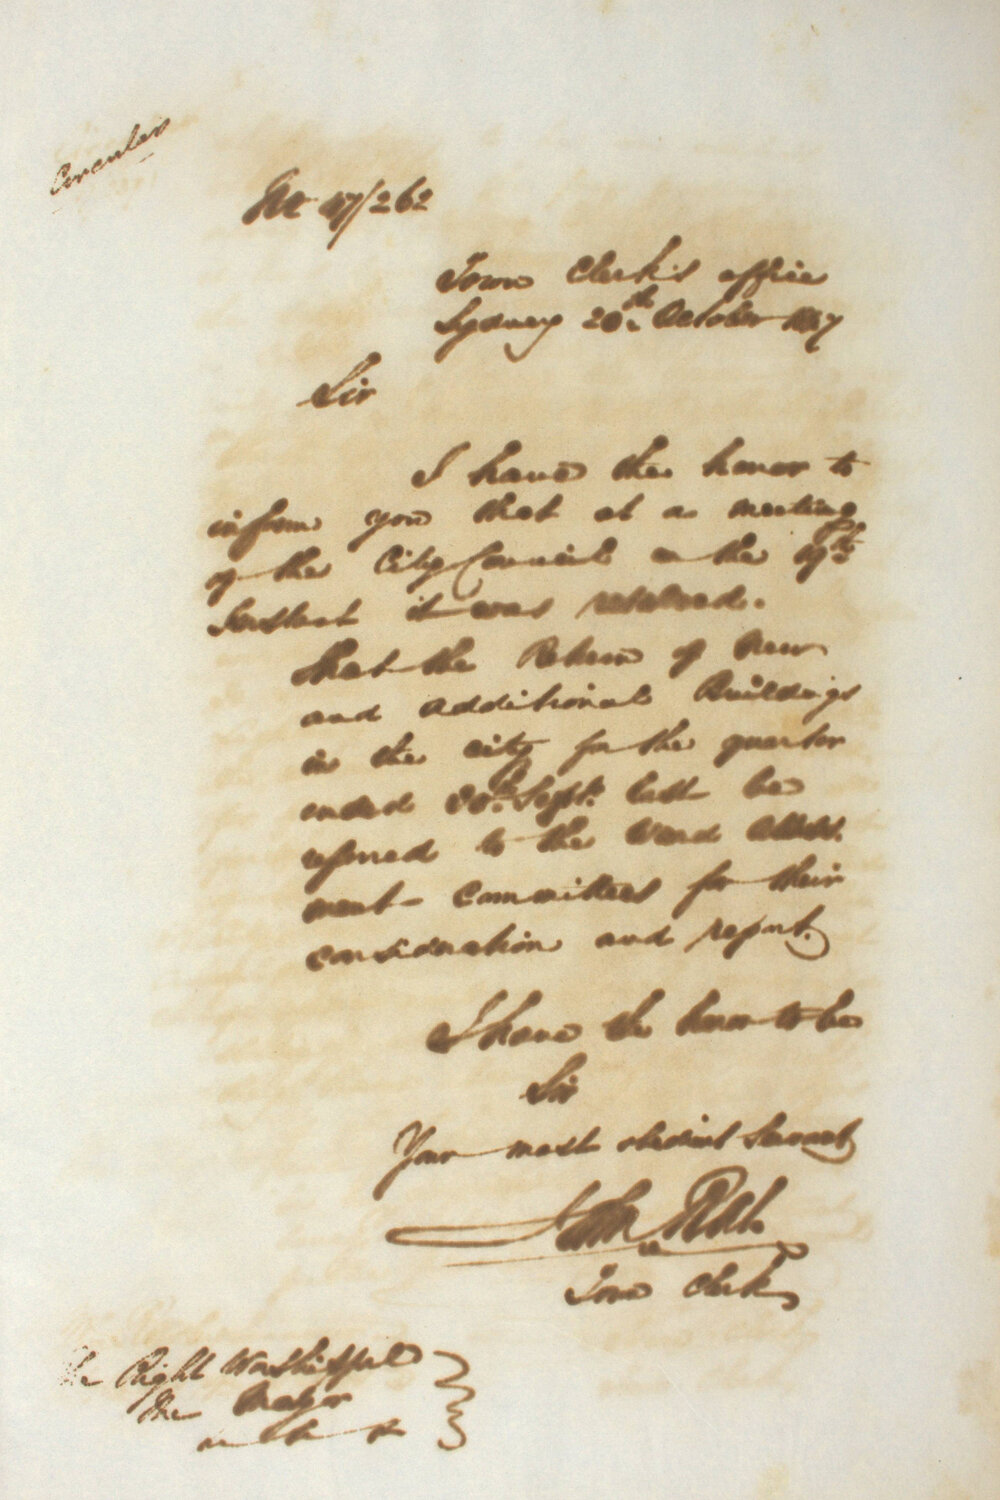 Circular
No 47/262
Town Clerk's office
Sydney 20th October 1847
Sir
I have the honor to
inform you that at a meeting
of the City Council on the 19th
Instant it was resolved.
that the Return of New
and additional Buildings
in the city for the quarter
ended 30th Sept. last be
referred to the Ward Assess.
ment Committees for their
consideration and report.
I have the honor to be
Sir
Your most obedient Servant
John
Town Clerk
The Right Worshipful
The Mayor